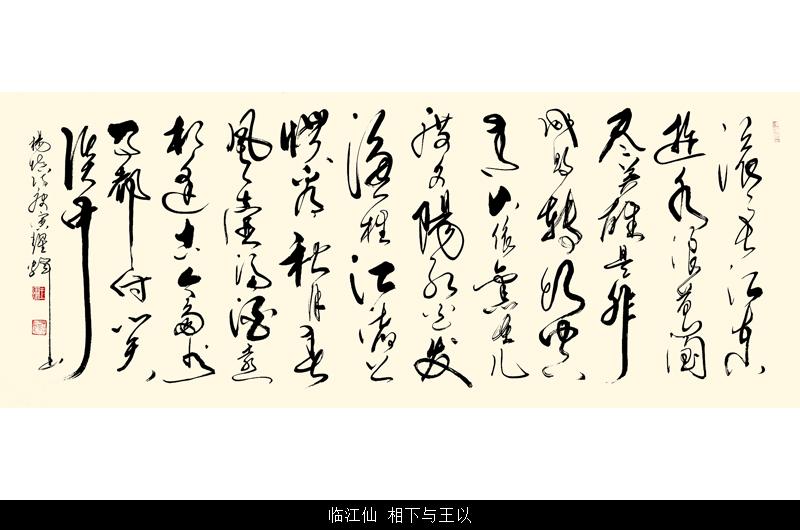 滚滚长江东
逝水浪花淘
尽英雄是非
成败转头空
青山依旧在几
度夕阳红白发
渔樵江渚上
惯看秋月春
风一壶浊酒喜
相逢古今多少
事都付笑
谈中
杨慎词庚寅耀
临江仙 相下与王以